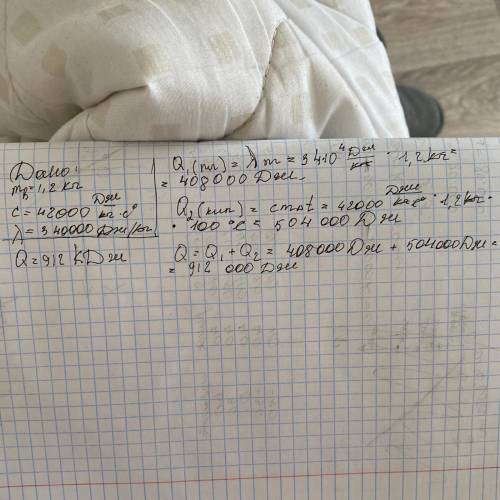 Дано:
m₆=1,2 кг
c = 42000 Дж/кг·c°
λ = 340000 Дж/кг
Q = 912 кДж
Q₁(пл) = λm = 34·10⁴ Дж/кг · 1,2 кг =
= 408000 Дж.
Q₂(кип) = cmΔt = 42000 Дж/кг·c° · 1,2 кг ·
· 100 °C = 504 000 Дж
Q = Q₁ + Q₂ = 408000 Дж + 504000 Дж =
= 912 000 Дж